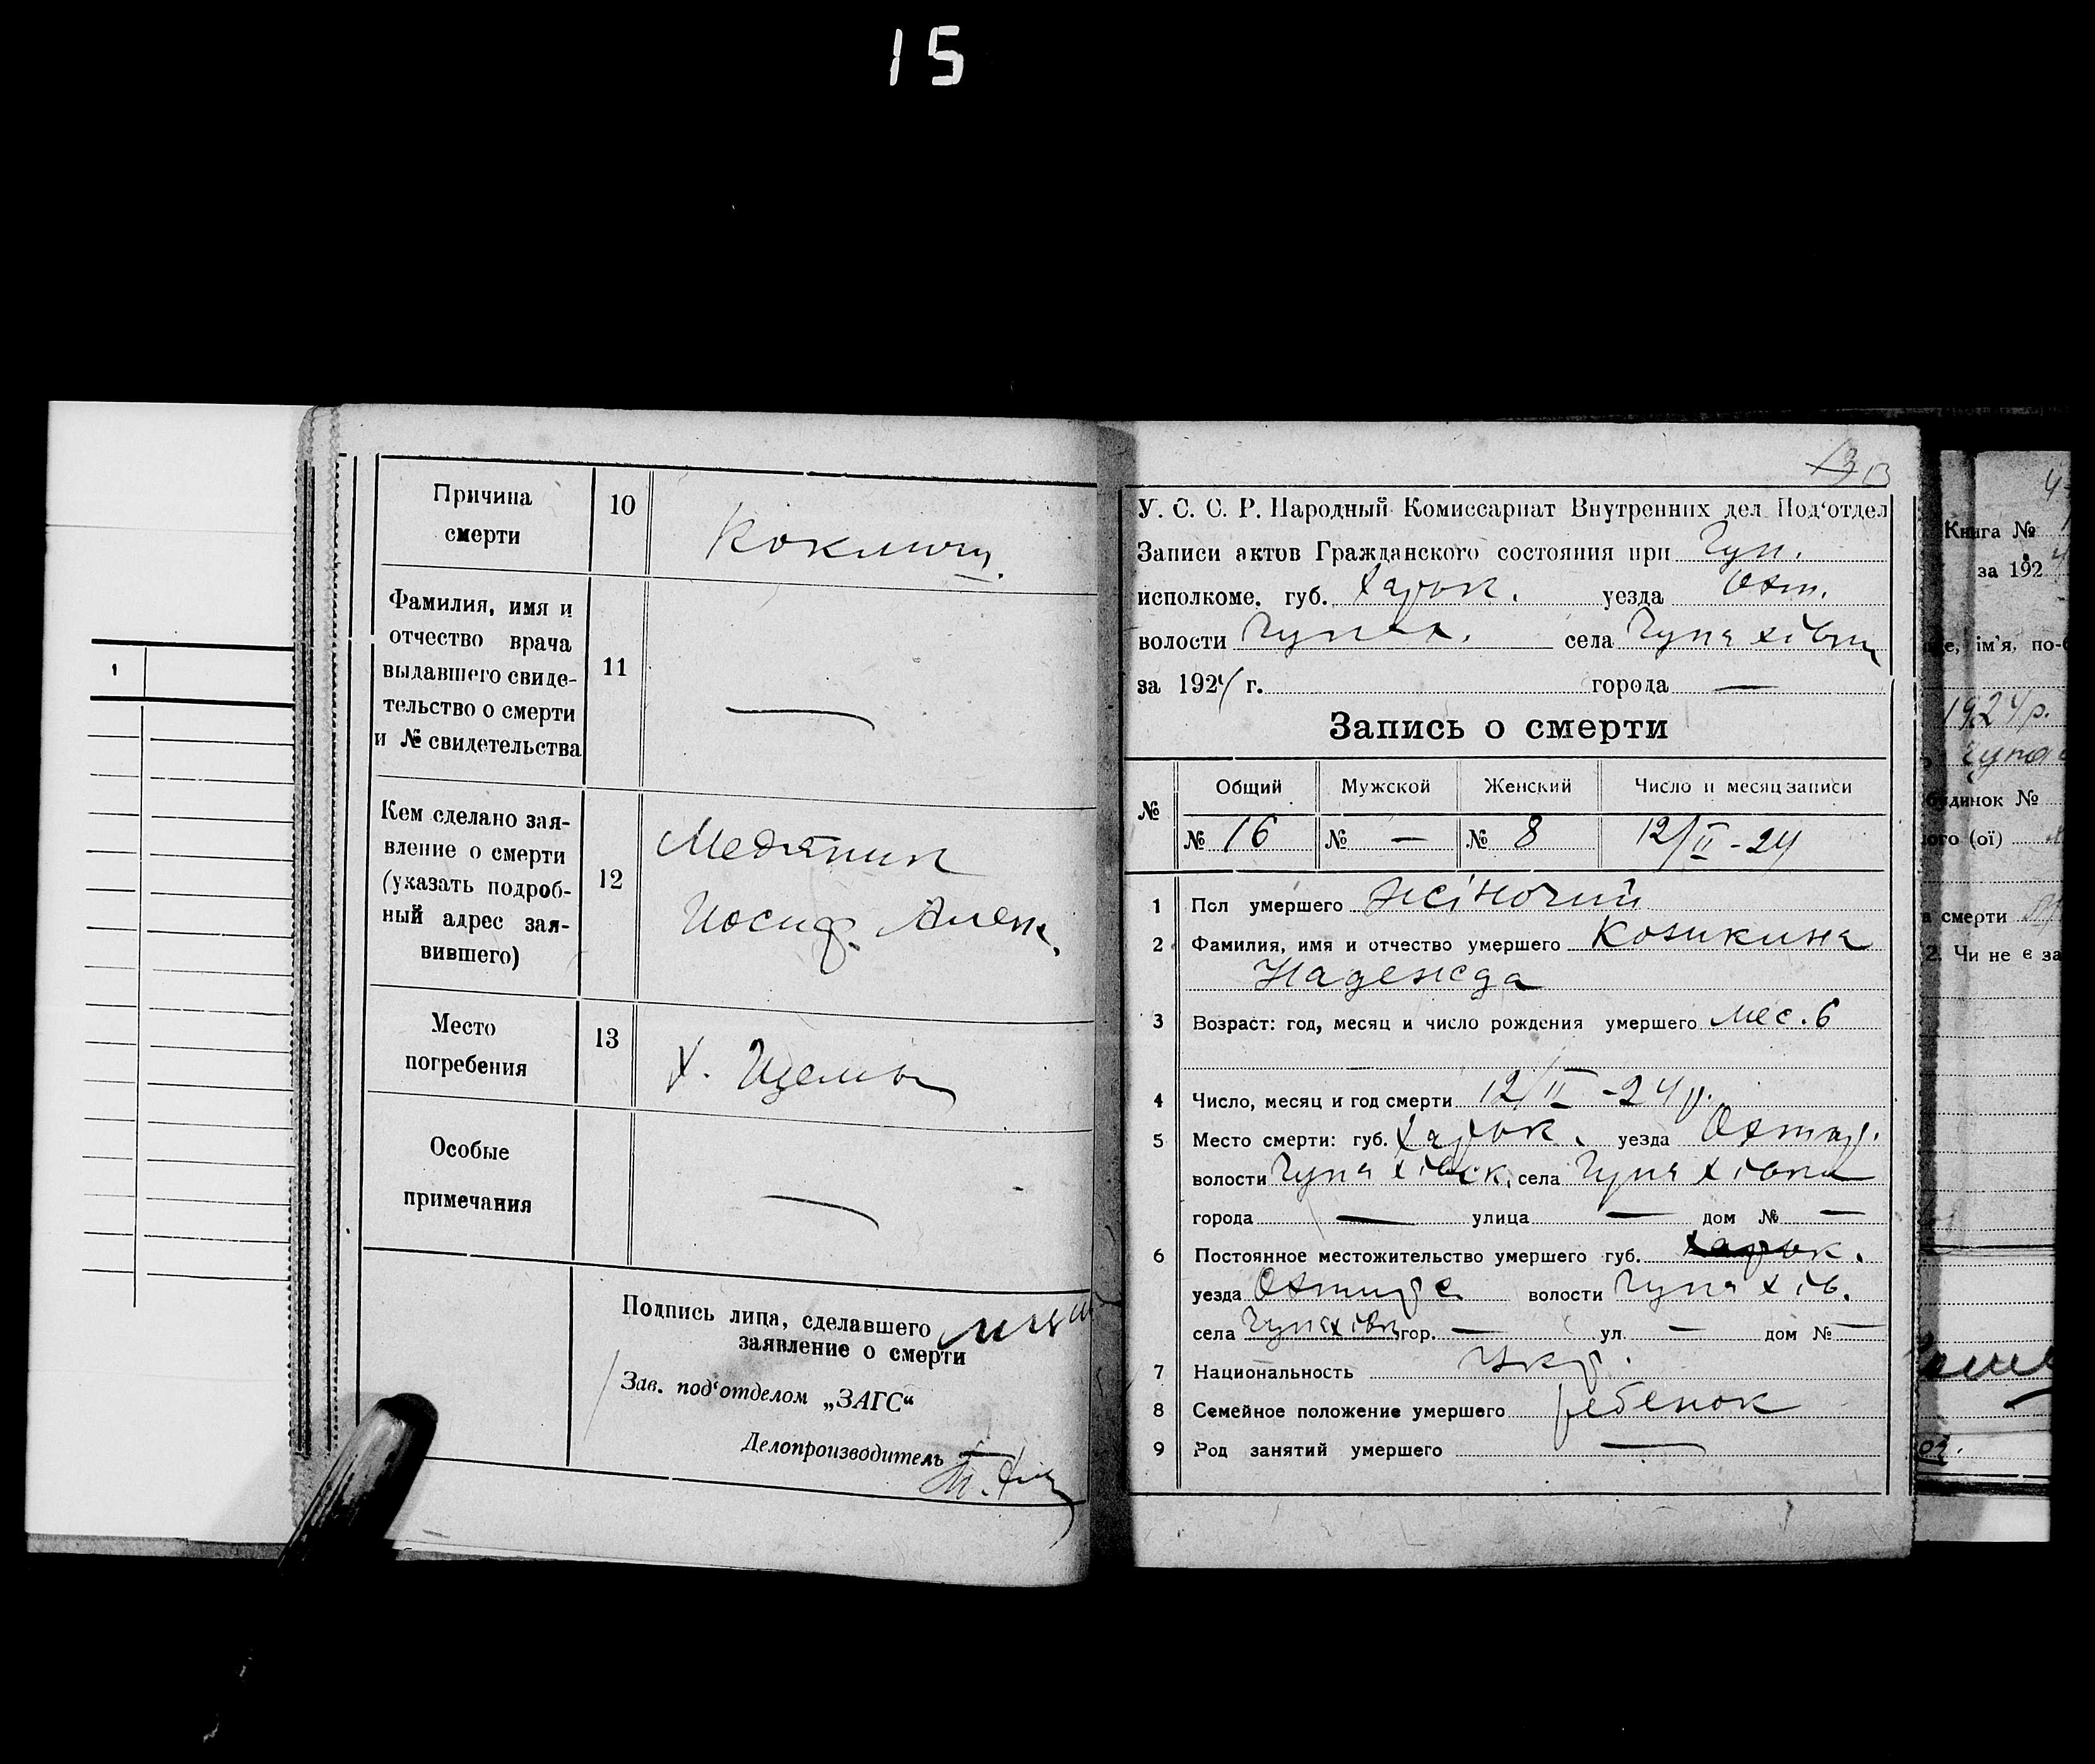 15
1
Причина
смерти
10
Коклюш.
Фамилия, имя и
отчество врача
выдавшего свиде-
тельство о смерти
и № свидетельства
11
—
Кем сделано зая-
вление о смерти
(указать подроб-
ный адрес зая-
вившего)
12
Медяник
Иосиф. Алек.
Место
погребения
13
Х.
Особые
примечания
—
Подпись лица, сделавшего
заявление о смерти
Зав. под‘отделом „ЗАГС“
Делопроизводитель
13 13
У. С. С. Р. Народный Комиссариат Внутренних дел Под‘отдел
Записи актов Гражданского состояния при Чуп.
исполкоме. губ. Харьк. уезда Охт.
волости Чупах. села Чупахівки
за 1924 г. города —
Запись о смерти
№ Общий Мужской Женский Число и месяц записи
№ 16 № — № 8 12/II-24
1 Пол умершего жіночий
2 Фамилия, имя и отчество умершего
Надежда
3 Возраст: год, месяц и число рождения умершего мес. 6
4 Число, месяц и год смерти 12/II-24 р.
5 Место смерти: губ. Харьк. уезда Охтир.
волости Чупахівск. села Чупахівка
города — улица — дом № —
6 Постоянное местожительство умершего губ. Харьк.
уезда волости Чупахів.
села Чупахівк гор. — ул. — дом № —
7 Национальность Укр.
8 Семейное положение умершего ребенок
9 Род занятий умершего —
Книга №
за 1924
ім’я, по-б
1924 р.
Чупа
будинок №
ого (ої)
а смерти
2. Чи не є за